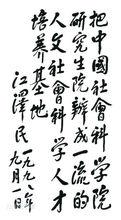 把中國社會科學院
研究生院辦成一流的
人文社會科學人才
培養基地
江澤民
一九九八年
九月一日